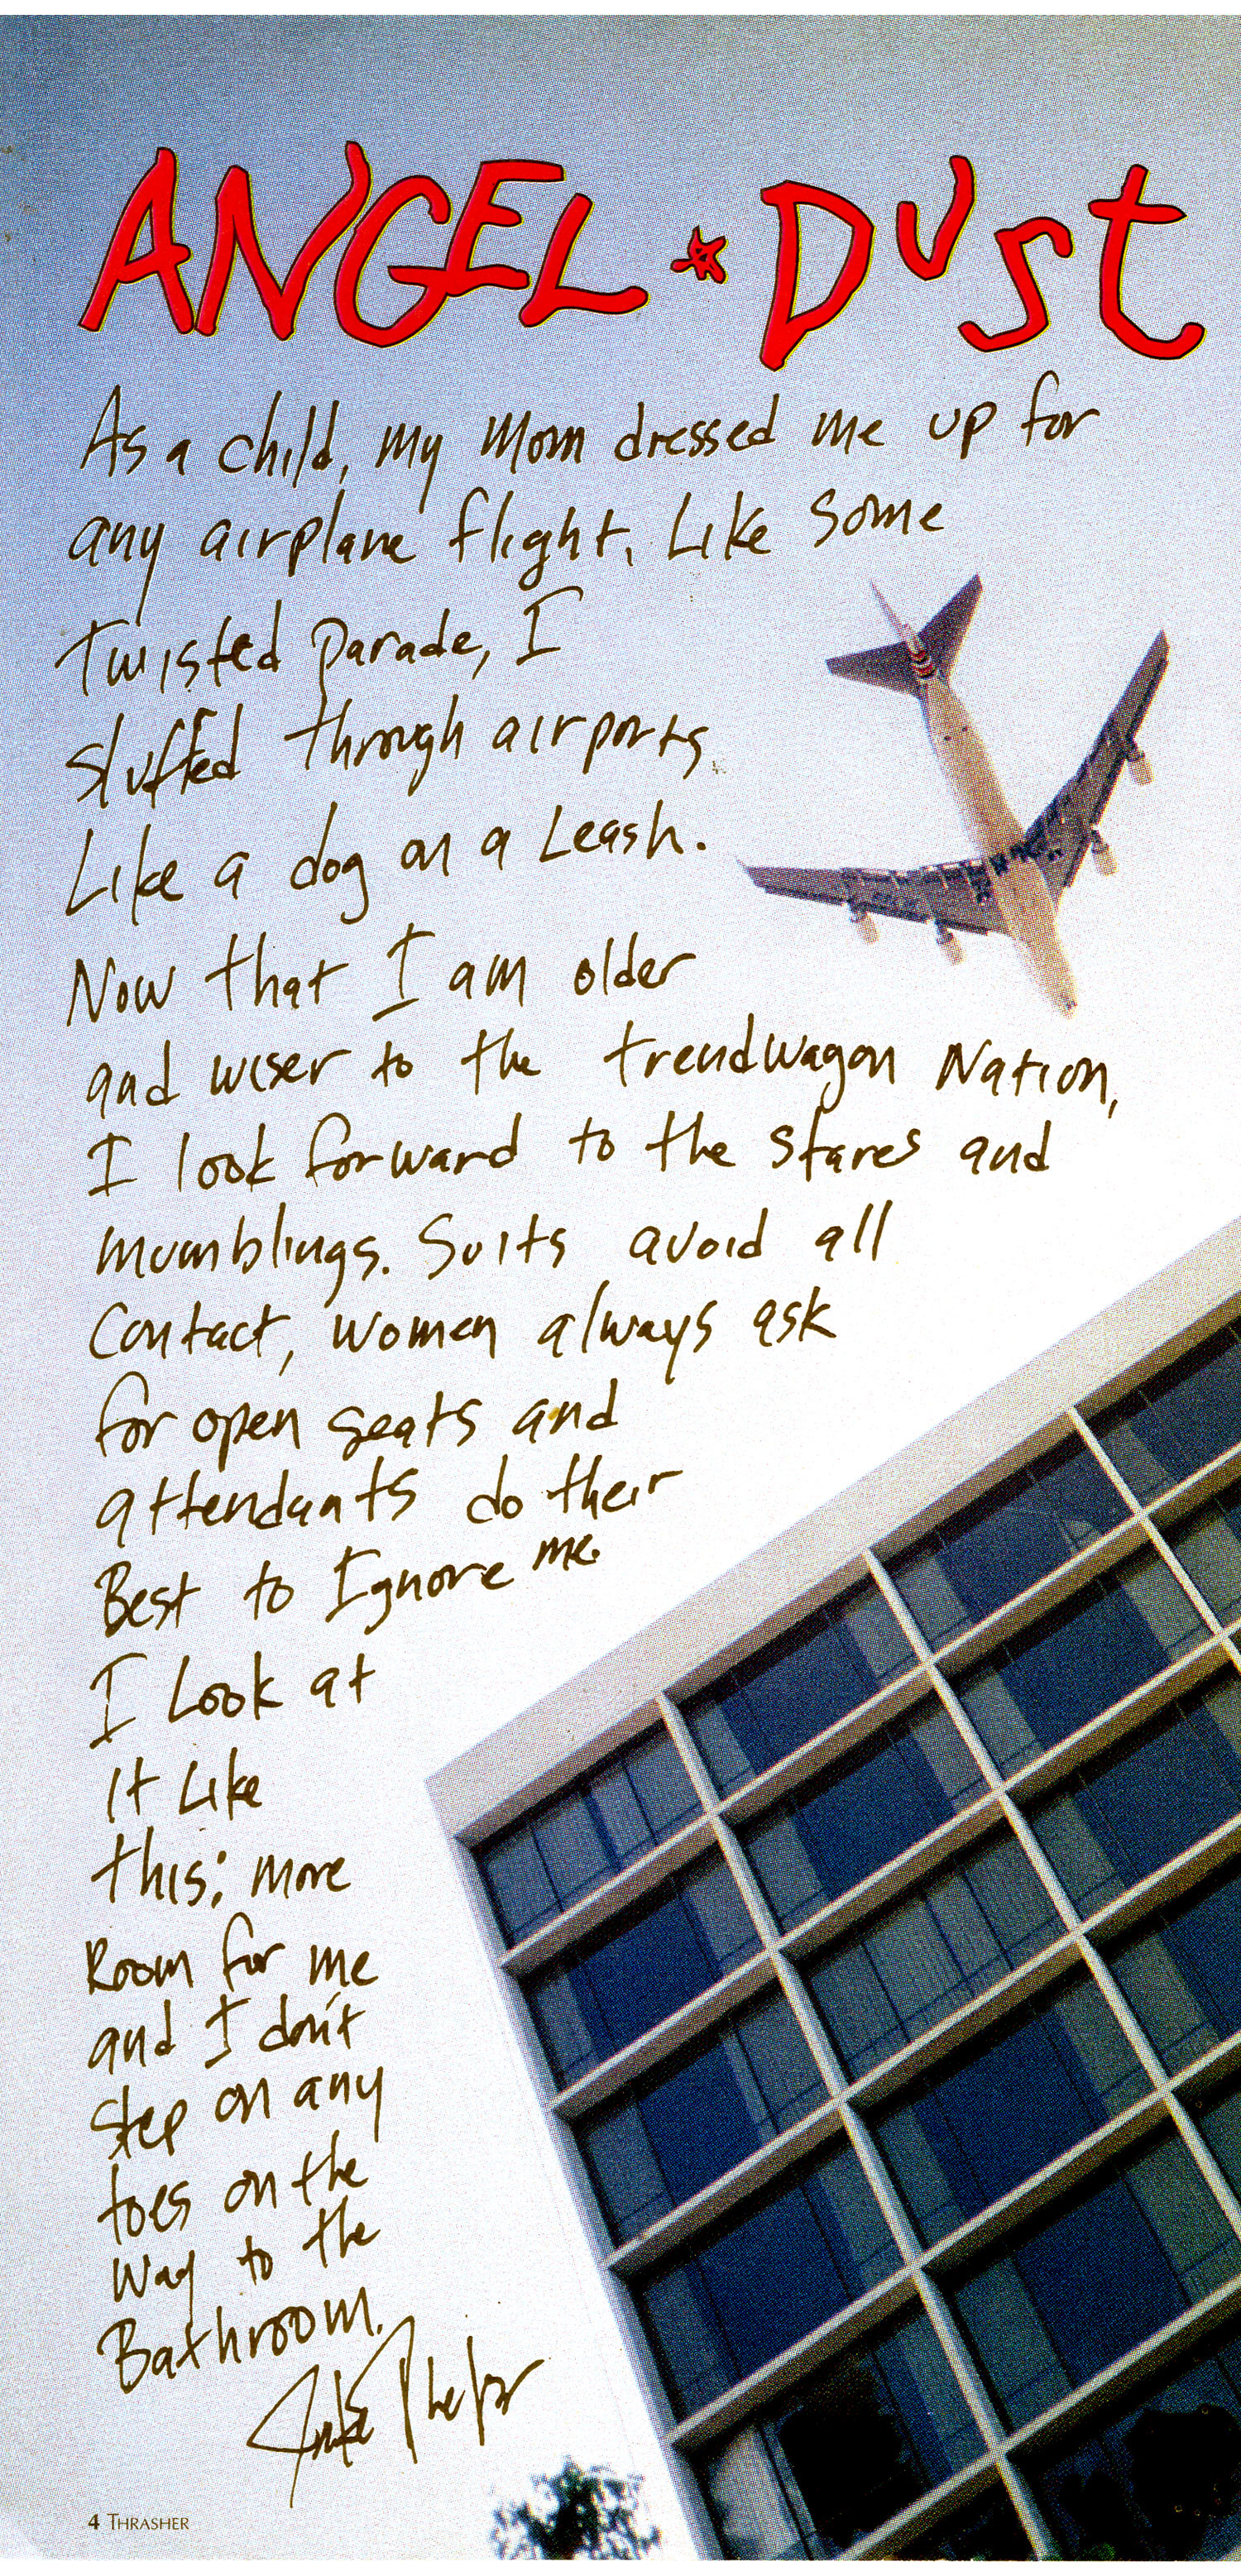 ANGEL * DUST
As a child, my mom dressed me up for
any airplane flight. Like some
Twisted parade, I
sluffed through airports
Like a dog on a Leash.
Now that I am older
and wiser to the trendwagon Nation,
I look forward to the stares and
mumblings. Suits avoid all
Contact, women always ask
for open seats and
attendants do their
Best to Ignore me.
I Look at
it Like
this: more
Room for me
and I don't
step on any
toes on the
way to the
Bathroom.
Jake Phelps
4 THRASHER